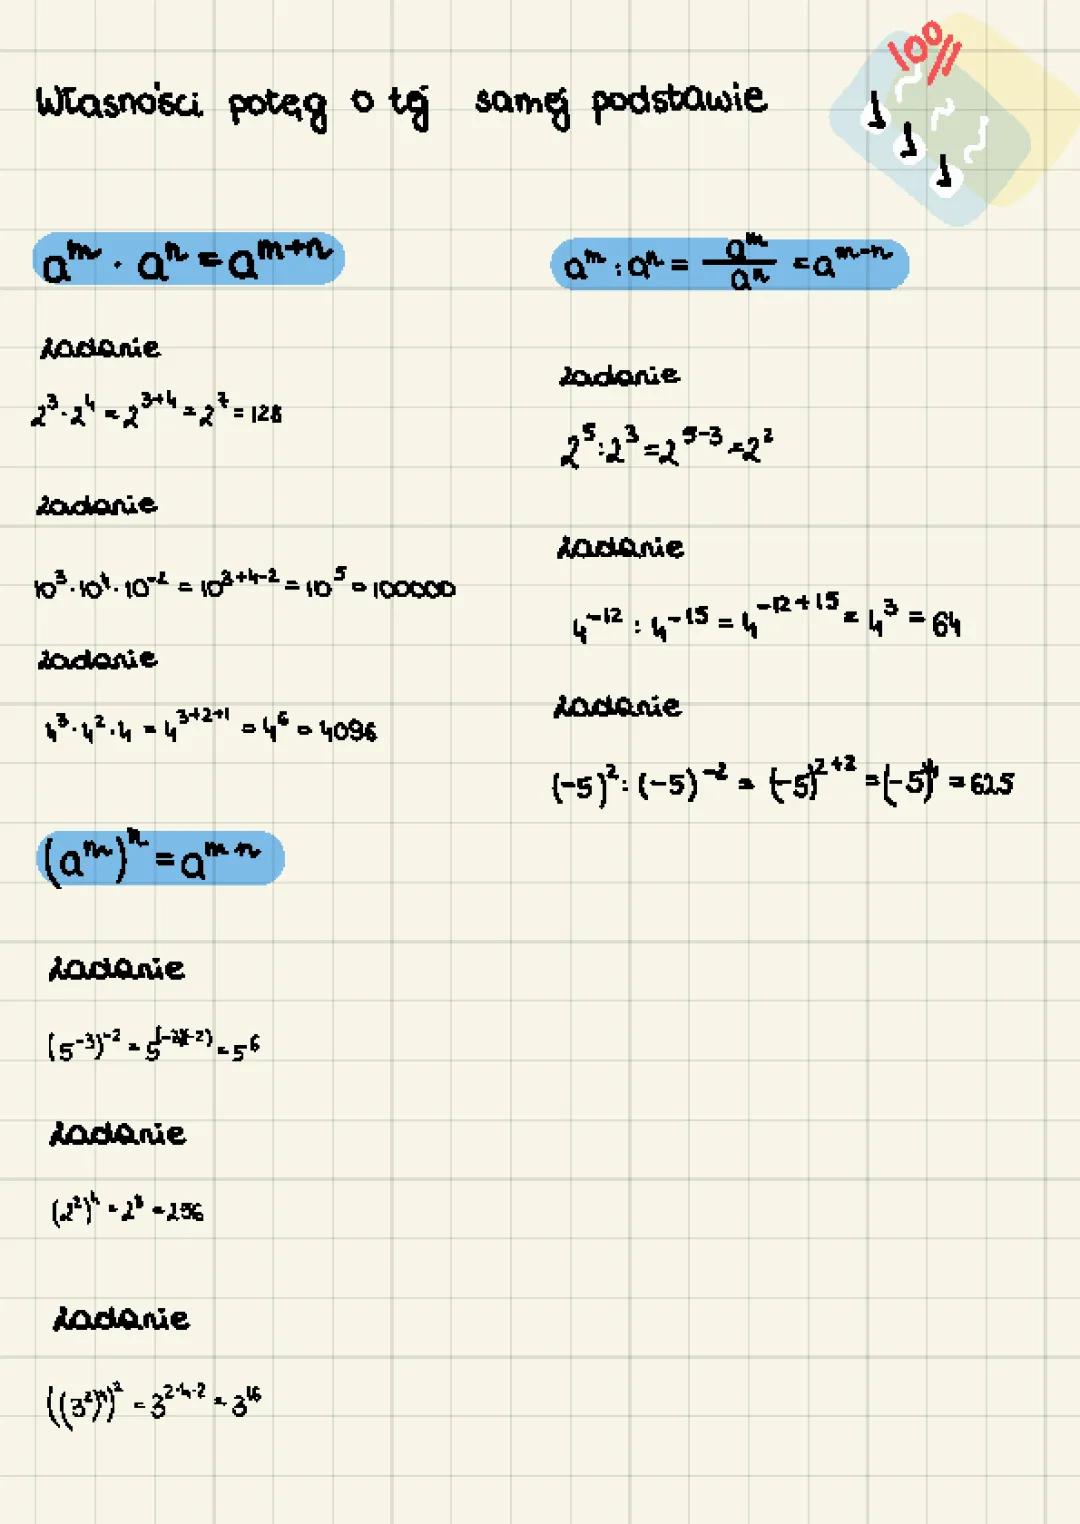 100%
Własności potęg o tej samej podstawie
1
1
1
a^m · a^n = a^{m+n}
Zadanie
2³·2⁴ = 2^{3+4} = 2⁷ = 128
Zadanie
10³·10⁴·10⁻² = 10^{3+4-2} = 10⁵ = 100000
Zadanie
4³·4²·4 = 4^{3+2+1} = 4⁶ = 4096
a^m : a^n = a^m/a^n = a^{m-n}
Zadanie
2⁵:2³ = 2^{5-3} = 2²
Zadanie
4⁻¹² : 4⁻¹⁵ = 4^{-12+15} = 4³ = 64
Zadanie
(-5)² : (-5)⁻² = (-5)^{2+2} = (-5)⁴ = 625
(a^m)^n = a^{m·n}
Zadanie
(5⁻³)⁻² = 5^{(-3)(-2)} = 5⁶
Zadanie
(2²)⁴ = 2⁸ = 256
Zadanie
((3²)⁴)² = 3^{2·4·2} = 3¹⁶